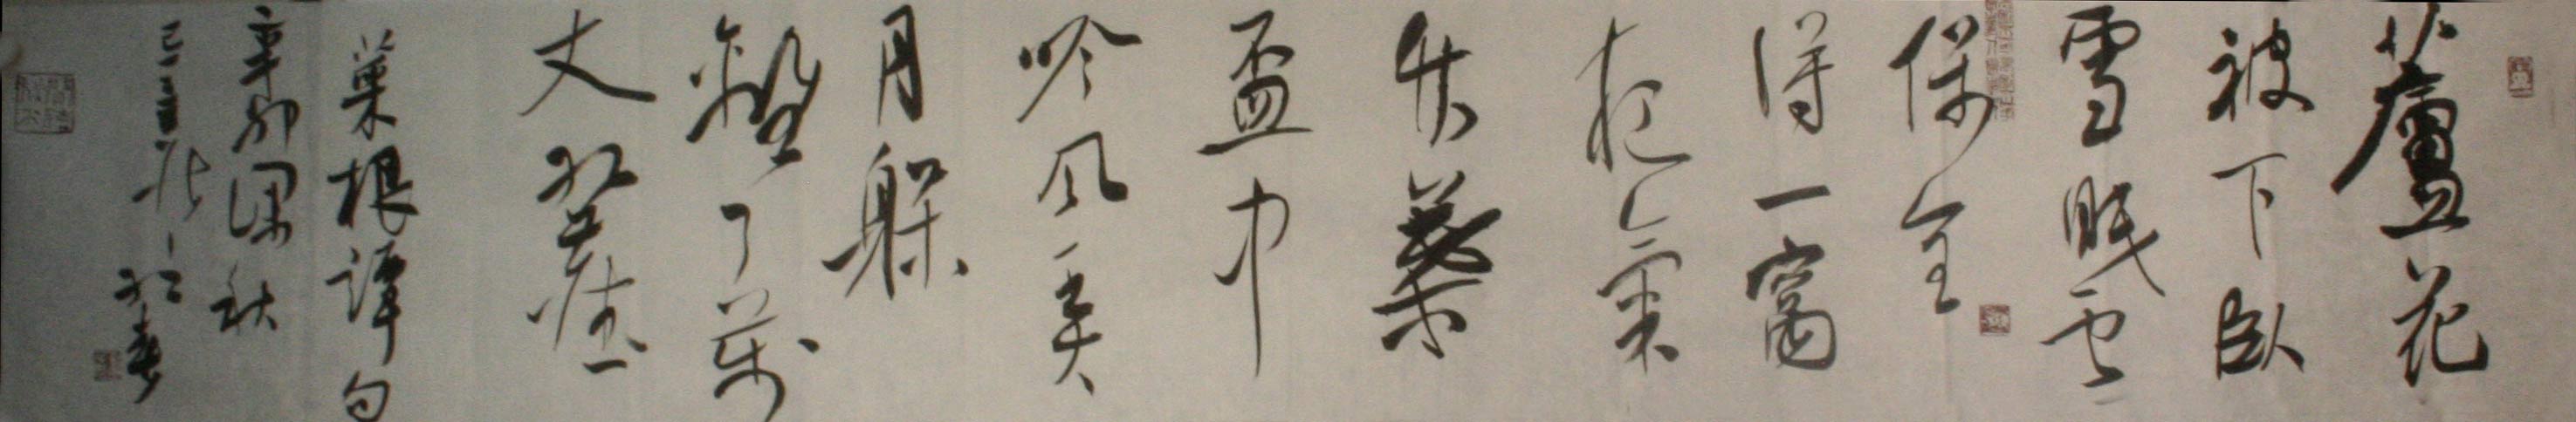 蘆花
被下臥
雪眠雲
保全
得一窩
夜氣
竹葉
盃中
吟風弄
月躲
離了萬
丈紅塵
菜根譚句
辛卯深秋